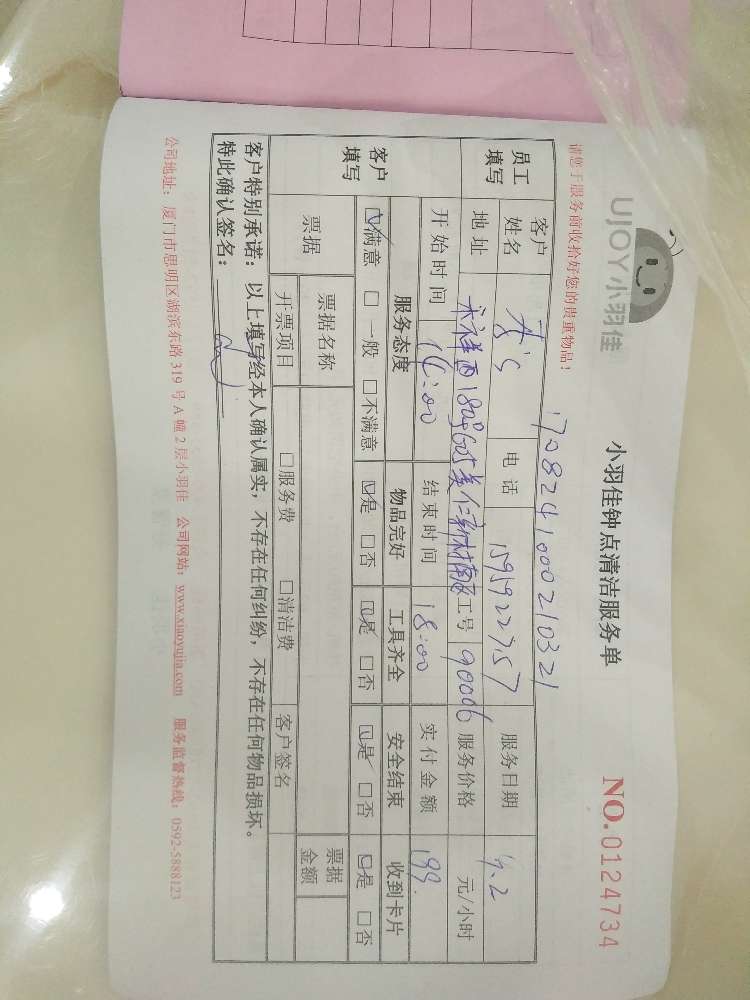 UJOY小羽佳
小羽佳钟点清洁服务单
NO.0124734
请您于服务前收拾好您的贵重物品!
1708241000210321
员工填写
客户姓名 电话 服务日期
地址 工号 90006 服务价格 元/小时
开始时间 16:00 结束时间 18:00 实付金额 199.
客户填写
服务态度 物品完好 工具齐全 安全结束 收到卡片
☑满意 □一般 □不满意 ☑是 □否 ☑是 □否 ☑是 □否 ☑是 □否
票据 票据名称 票据金额
开票项目 □服务费 □清洁费 客户签名
客户特别承诺:以上填写经本人确认属实,不存在任何纠纷,不存在任何物品损坏。
特此确认签名:
公司地址:厦门市思明区湖滨东路319号A幢2层小羽佳 公司网站:www.xiaoyujia.com 服务监督热线:0592-5888123